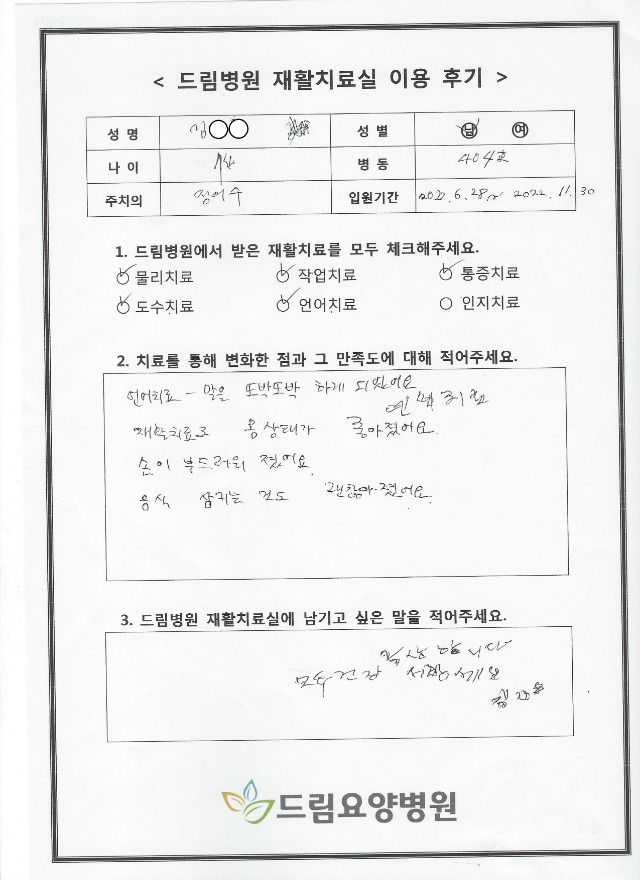 < 드림병원 재활치료실 이용 후기 >
성 명 김○○ 성 별 남 여
나 이 병 동 404호
주치의 정어수 입원기간 2022.6.28.~ 2022.11.30
1. 드림병원에서 받은 재활치료를 모두 체크해주세요.
물리치료 작업치료 통증치료
도수치료 언어치료 인지치료
2. 치료를 통해 변화한 점과 그 만족도에 대해 적어주세요.
언어치료 - 말을 또박또박 하게 되었어요
재활치료로 몸상태가 좋아졌어요.
손이 부드러워 졌어요.
음식 삼키는 것도 괜찮아졌어요.
3. 드림병원 재활치료실에 남기고 싶은 말을 적어주세요.
감사합니다
모두 건강 하세요
드림요양병원